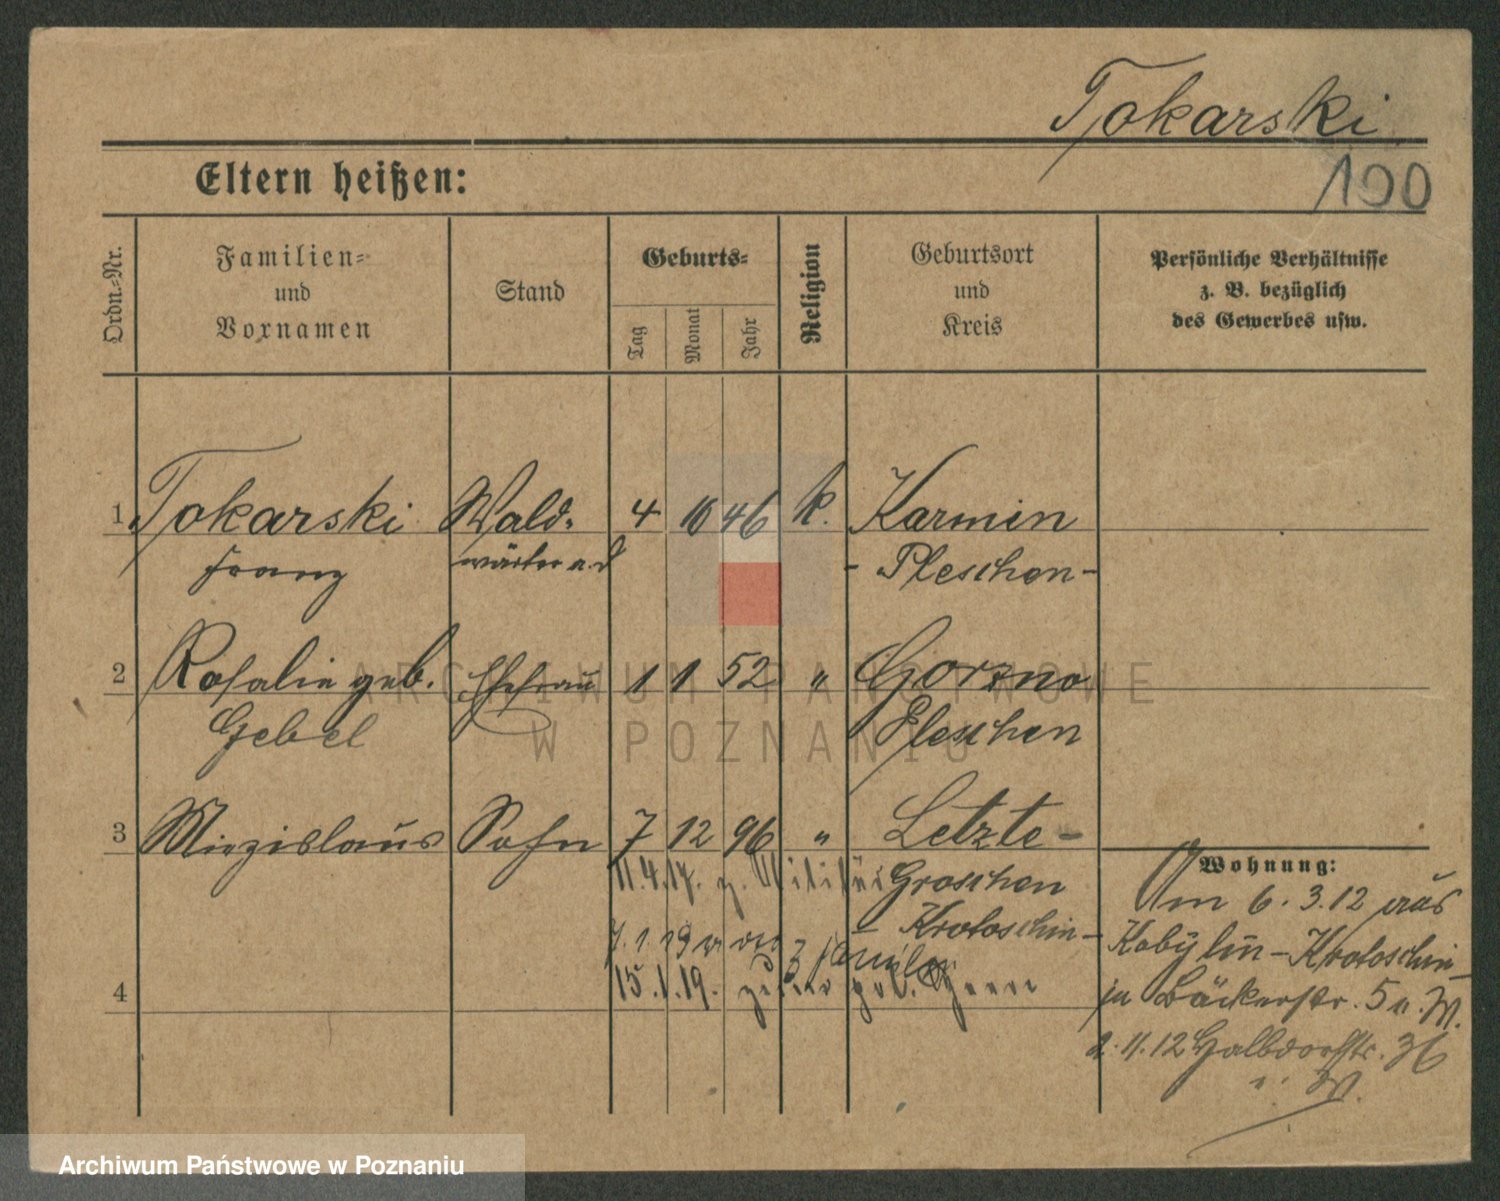 Tokarski
100
Eltern heißen:
Ordn.-Nr.
Familien-
und
Vornamen
Stand
Geburts-
Tag
Monat
Jahr
Religion
Geburtsort
und
Kreis
Persönliche Verhältnisse
z. B. bezüglich
des Gewerbes usw.
1 Tokarski Wald- 4 10 46 k. Karmin
Franz wärter a.d - Pleschen -
2 Rosalie geb. Ehefrau 1 1 52 " Gorzno
Gebel Pleschen
3 Miezislaus Sohn 7 12 96 " Letzte-
11.4.17. z. Militär Groschen
7.1.19 von z. Familie - Krotoschin -
15.1.19. zur pol. Heere
4
Wohnung:
Am 6.3.12 aus
Kobylin - Krotoschin
in Bäckerstr. 5 u. W.
2.11.12 Halbdorfstr. 36
i. W.
ARCHIWUM PAŃSTWOWE
W POZNANIU
Archiwum Państwowe w Poznaniu